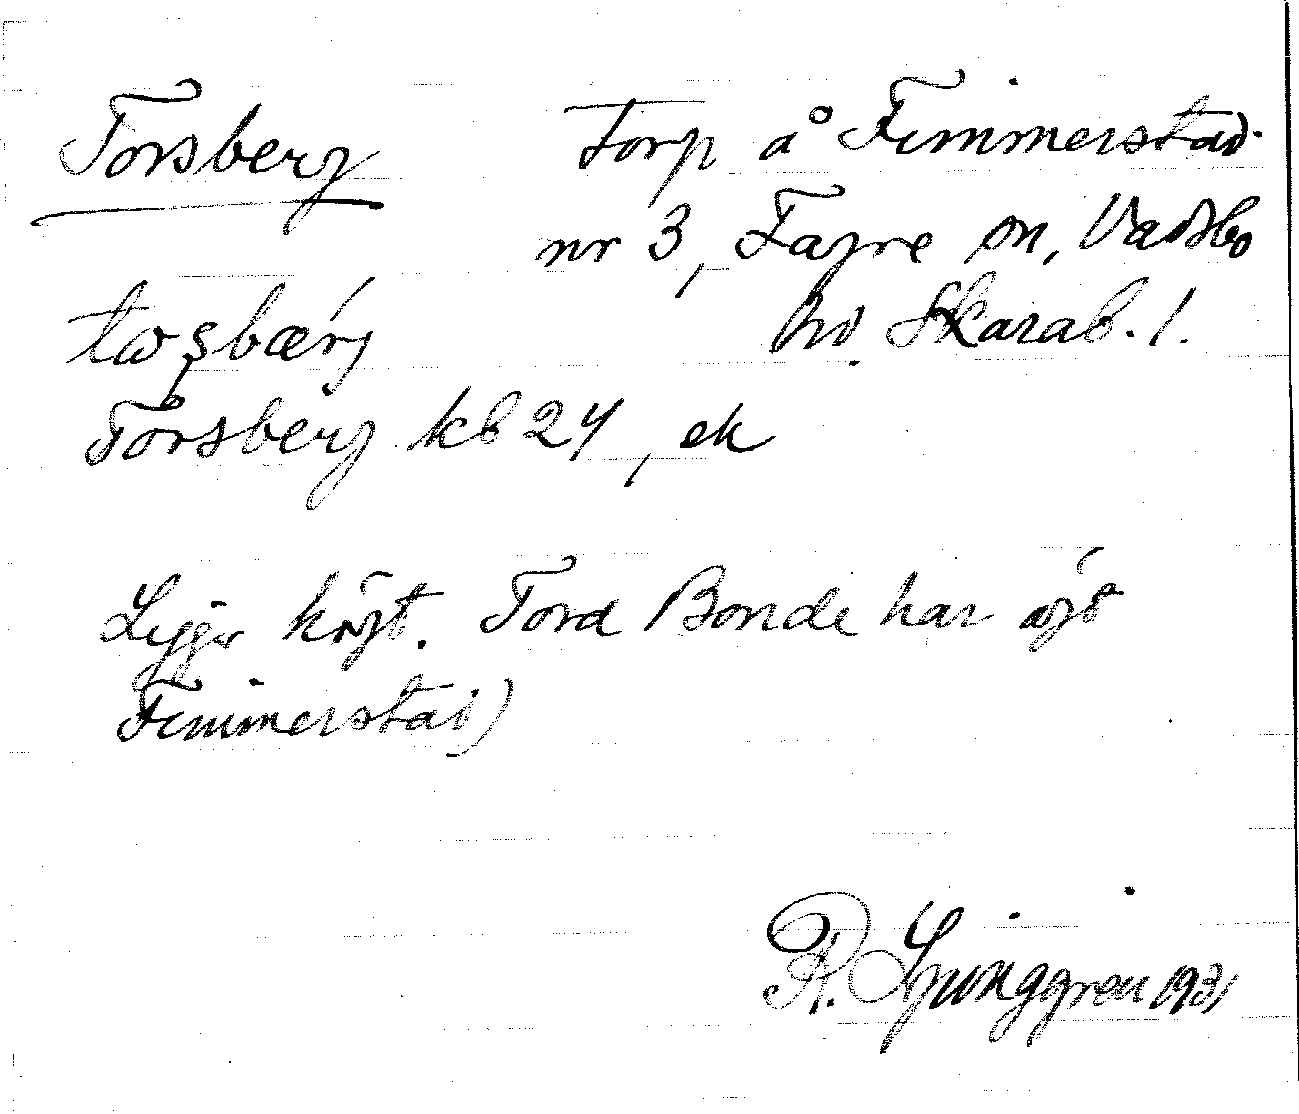 Torsberg
Torp å Fimmerstad
nr 3, Fägre sn, Vadsbo
hd. Skarab. l.
Torsberg kb 24, ek
Ligger högt. Tord Bonde har ägt
Fimmerstad)
R. Ljunggren 1931